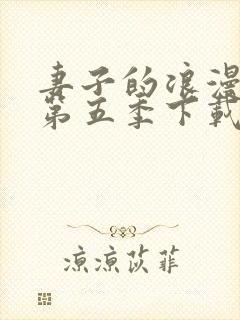 妻子的浪漫
第五季下载
凉凉茨菲